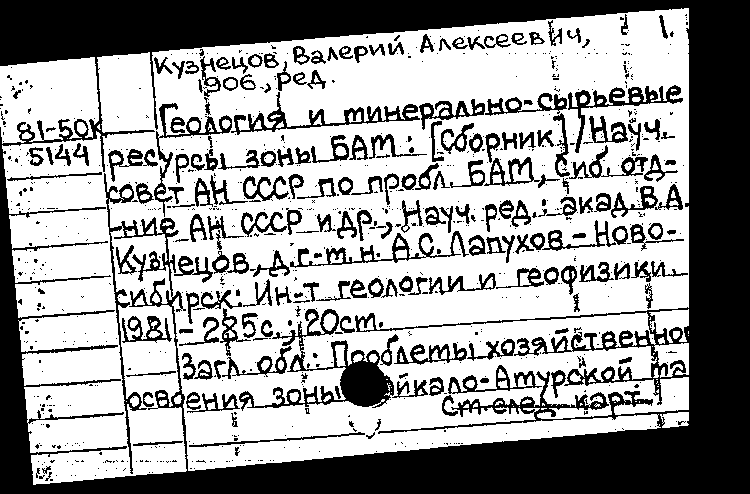 1.
Кузнецов, Валерий Алексеевич,
1906, ред.
81-50К
5144
Геология и минерально-сырьевые
ресурсы зоны БАМ: [Сборник] / Науч.
совет АН СССР по пробл. БАМ, Сиб. отд-
-ние АН СССР и др.; Науч. ред.: акад. В.А.
Кузнецов, д.г.-м. н. А.С. Лапухов. - Ново-
сибирск: Ин-т геологии и геофизики.
1981 - 285с.; 20см.
Загл. обл.: Проблемы хозяйственно
освоения зоны айкало-Амурской ма
См. след. карт.